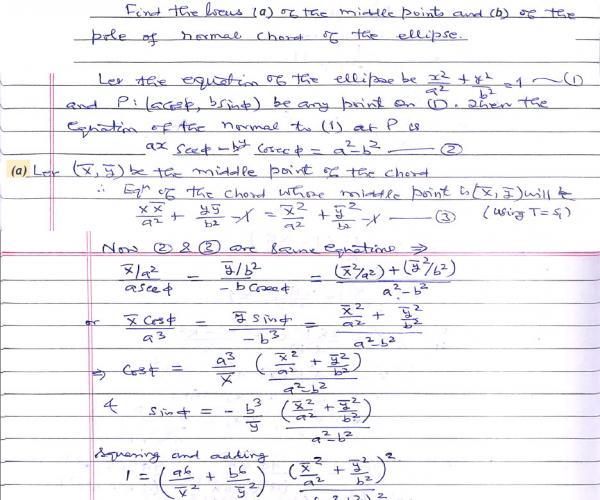 Find the locus (a) of the middle points and (b) of the
pole of normal chord of the ellipse.
Let the equation of the ellipse be x²/a² + y²/b² = 1 — (1)
and P: (a cosφ, b sinφ) be any point on (1). Then the
equation of the normal to (1) at P is
ax secφ - by cosecφ = a² - b² — (2)
(a) Let (x̄, ȳ) be the middle point of the chord
∴ Eqⁿ of the chord whose middle point is (x̄, ȳ) will be
x x̄/a² + y ȳ/b² - 1 = x̄²/a² + ȳ²/b² - 1 — (3) (using T = S₁)
Now (2) & (3) are same equations ⇒
(x̄/a²)/(a secφ) = (ȳ/b²)/(-b cosecφ) = ((x̄²/a²) + (ȳ²/b²))/(a² - b²)
or x̄ cosφ/a³ = ȳ sinφ/(-b³) = (x̄²/a² + ȳ²/b²)/(a² - b²)
⇒ cosφ = a³/x̄ (x̄²/a² + ȳ²/b²)/(a² - b²)
& sinφ = - b³/ȳ (x̄²/a² + ȳ²/b²)/(a² - b²)
Squaring and adding
1 = (a⁶/x̄² + b⁶/ȳ²) (x̄²/a² + ȳ²/b²)²